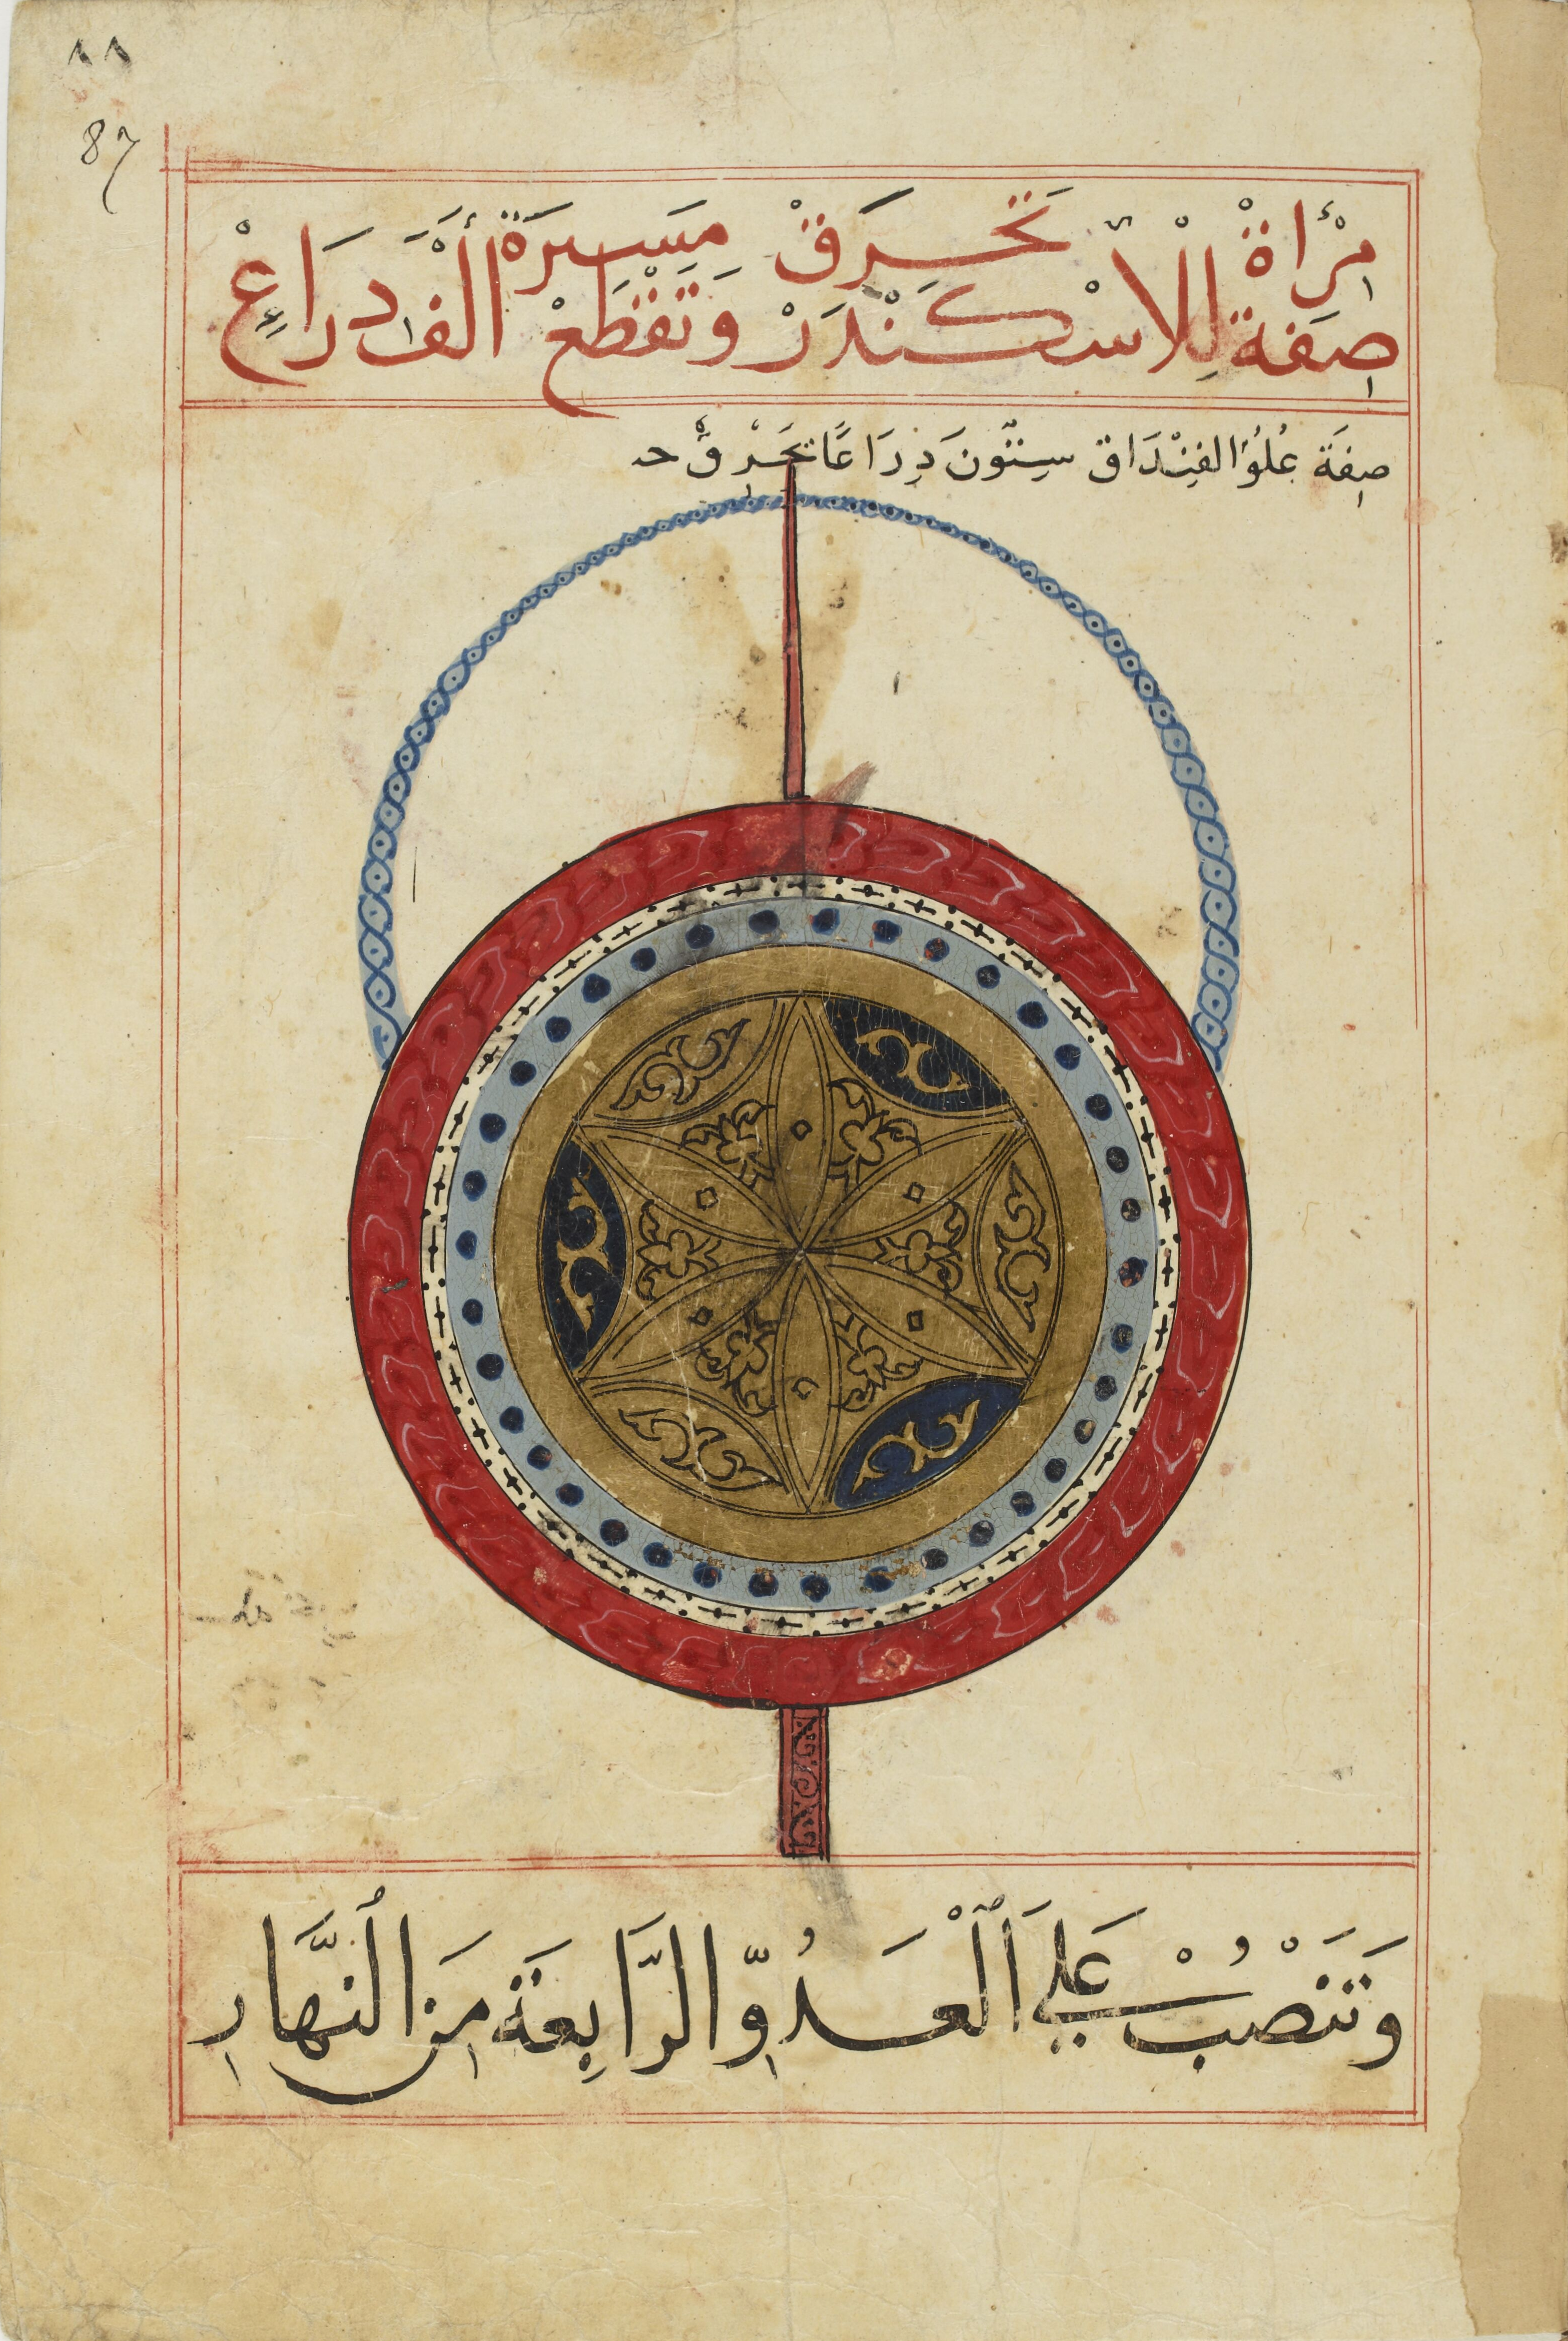 ٨٨
87
صِفَة مِرْاة لِلْاسْكَنْدَرْ تَحَرَقْ مَسِيرَة أَلْفْ دِرَاعِ وَتَقْطَعْ
صِفَة عُلُوّ الفِنْدَاق سِتّونَ دِرَاعًا تَحَرْقْ
وَتَنصْبُ عَلَي اَلْعَدُوِّ الرَّابِعَة مِنَ اُلنَّهَارِ